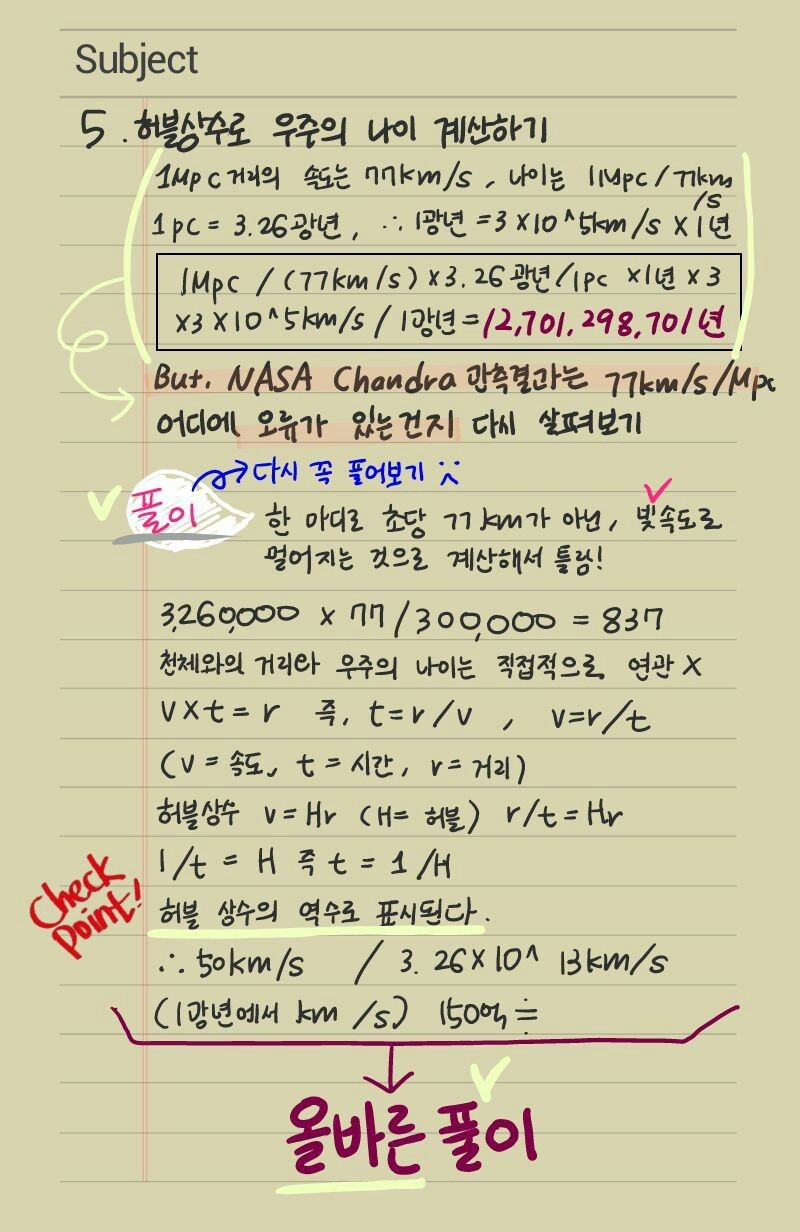 Subject
5. 허블상수로 우주의 나이 계산하기
1Mpc 거리의 속도는 77km/s, 나이는 1Mpc/77km
/s
1pc = 3.26광년, ∴ 1광년 = 3×10^5km/s × 1년
1Mpc / (77km/s) × 3.26광년/1pc × 1년 × 3
×3×10^5km/s / 1광년 = 12,701,298,701년
But, NASA Chandra 관측결과는 77km/s/Mpc
어디에 오류가 있는건지 다시 살펴보기
다시 꼭 풀어보기
풀이
한 마디로 초당 77km가 아닌, 빛속도로
멀어지는 것으로 계산해서 틀림!
3,260,000 × 77/300,000 = 837
천체와의 거리와 우주의 나이는 직접적으로 연관 X
v×t = r 즉, t=r/v , v=r/t
(v = 속도, t = 시간, r = 거리)
허블상수 v=Hr (H= 허블) r/t = Hr
1/t = H 즉 t = 1/H
Check Point!
허블 상수의 역수로 표시된다.
∴ 50km/s / 3.26×10^ 13km/s
(1광년에서 km/s) 150억 ≒
올바른 풀이